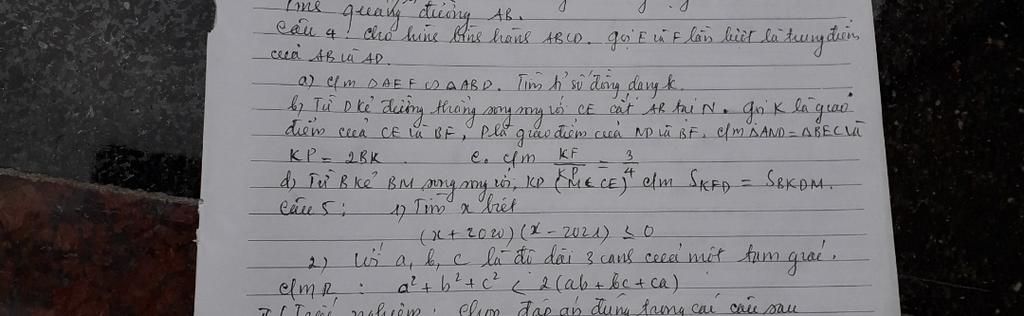 Tính quãng đường AB.
Câu 4. cho hình bình hành ABCD. gọi E và F lần lượt là trung điểm
của AB và AD.
a) c/m △AEF ∽ △ABD. Tìm tỉ số đồng dạng k.
b) Từ D kẻ đường thẳng song song với CE cắt AB tại N. Gọi K là giao
điểm của CE và BF, P là giao điểm của ND và BF. c/m △AND = △BEC và
KP = 2BK. c. c/m KF/KP = 3/4
d) Từ B kẻ BM song song với KD (M ∈ CE) c/m S_KFD = S_BKDM.
Câu 5: 1) Tìm x biết
(x + 2020)(x - 2021) ≤ 0
2) Với a, b, c là độ dài 3 cạnh của một tam giác.
c/mR : a² + b² + c² < 2(ab + bc + ca)
I/ Trắc nghiệm: Chọn đáp án đúng trong các câu sau